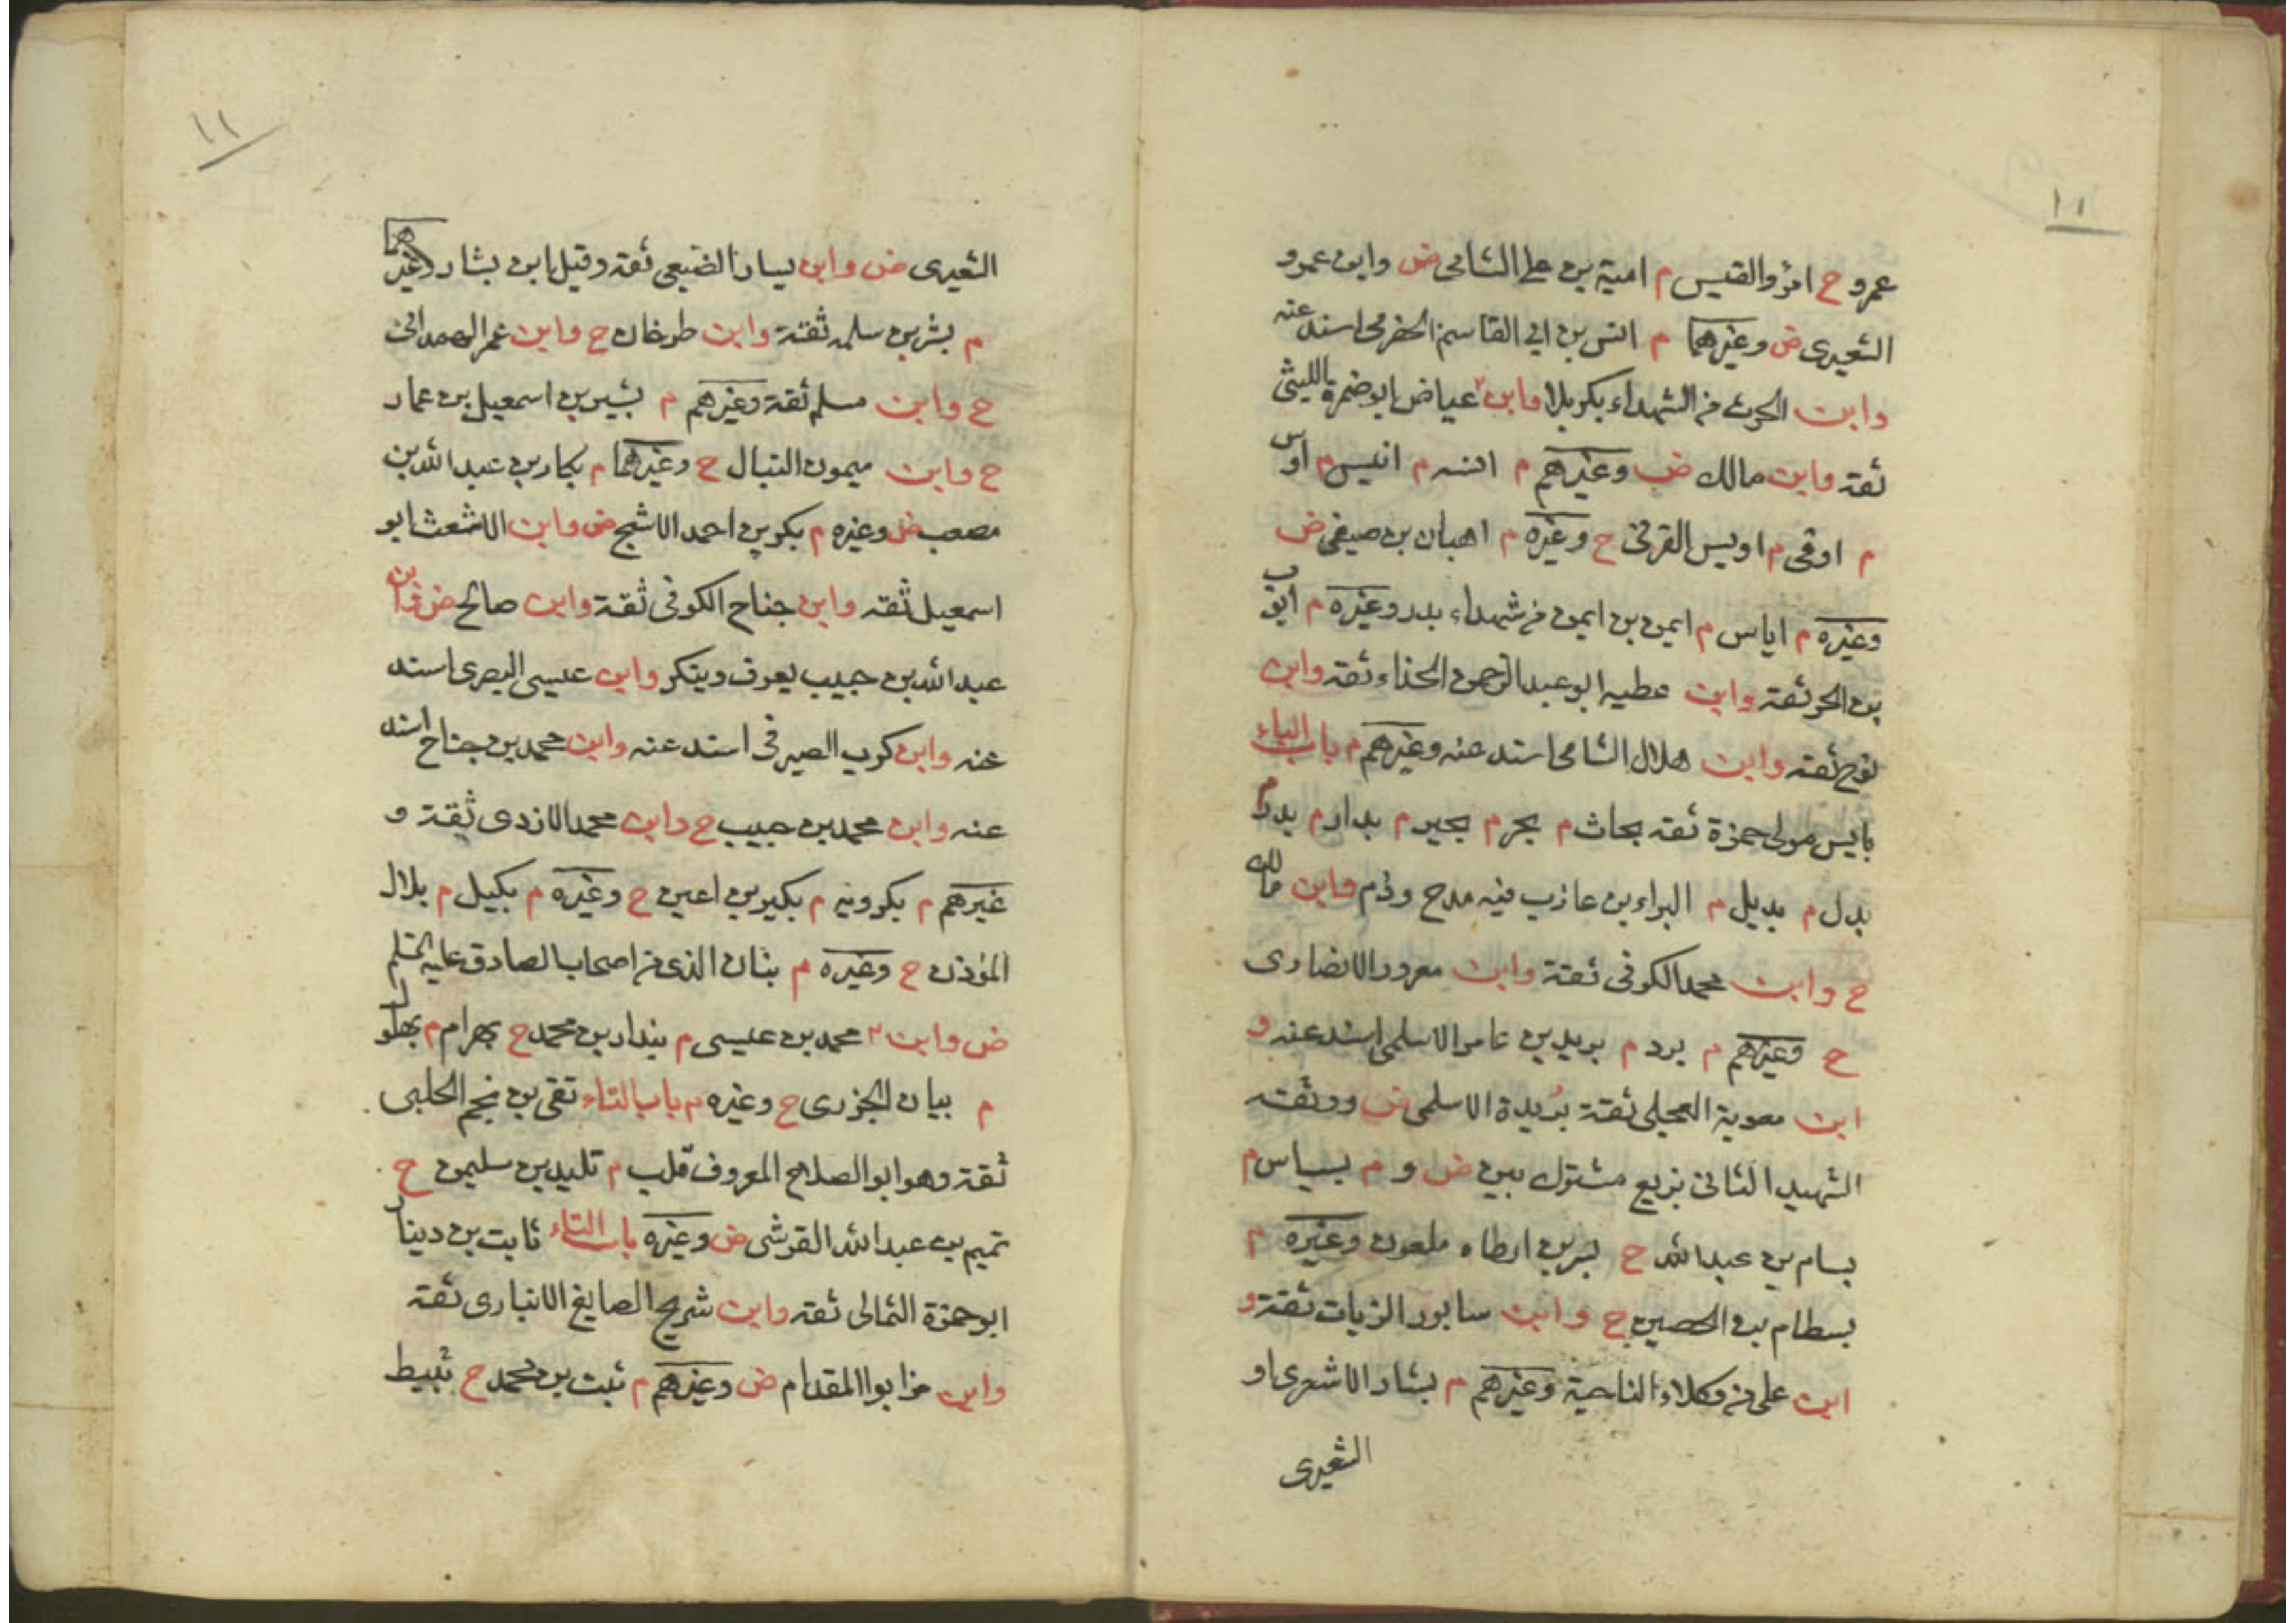 ١١
عمرو ح امرؤ القيس م امية بن علي الشامي ض وابن عمرو
الشعيرى ض وغيرهما م انس بن ابي القاسم الحضرمي اسند عنه
وابن الحرث من الشهداء بكربلا وابن عياض ابو ضمرة الليثى
ثقة وابن مالك ض وغيرهم م انسه م انيس م اوس
م اوفى م اويس القرنى ح وغيره م اهبان بن صيفي ض
وغيره م اياس م ايمن بن ايمن من شهداء بدر وغيره م ايوب
بن الحر ثقة وابن عطيه ابو عبد الرحمن الحذاء ثقة وابن
نوح ثقة وابن هلال الشامي اسند عنه وغيرهم م باب الباء
بايس مولى حمزة ثقه بحاث م بحر م بحير م بدار م بدر م
بدل م بديل م البراء بن عازب فيه مدح وذم وابن مالك
ح وابن محمد الكوفى ثقة وابن معرور الانصارى
ح وغيرهم م برد م بريد بن عامر الاسلمى اسند عنه و
ابن معوية العجلى ثقة بُريدة الاسلمى ض ووثقه
الشهيد الثانى بزيع مشترك بين ض و م بسباس م
بسام بن عبد الله ح بسر بن ارطاه ملعون وغيره م
بسطام بن الحصين ح وابن سابور الزيات ثقة و
ابن على من وكلاء الناحية وغيرهم م بشار الاشعرى او
الشعيرى
١١
الشعيرى ض وابن يسار الضبيعى ثقة وقيل ابن بشار وغيرهما
م بشر بن سلمه ثقة وابن طرخان ح وابن عمر الهمدانى
ح وابن مسلم ثقة وغيرهم م بشير بن اسمعيل بن عمار
ح وابن ميمون النبال ح وغيرهما م بكار بن عبد الله بن
مصعب ض وغيره م بكر بن احمد الاشج ض وابن الاشعث ابو
اسمعيل ثقه وابن جناح الكوفى ثقة وابن صالح ض وابن
عبد الله بن حبيب يعرف وينكر وابن عيسى البصرى اسند
عنه وابن كرب الصيرفى اسند عنه وابن محمد بن جناح اسند
عنه وابن محمد بن حبيب ح وابن محمد الازدى ثقة و
غيرهم م بكرويه م بكير بن اعين ح وغيره م بكيل م بلال
المؤذن ح وغيره م بنان الذى من اصحاب الصادق عليه السلم
ض وابن محمد بن عيسى م بندار بن محمد ح بهرام م بهلول
م بيان الجزرى ح وغيره م باب التاء تقى بن نجم الحلبى
ثقة وهو ابو الصلاح المعروف قلب م تليد بن سليمن ح
تميم بن عبد الله القرشى ض وغيره باب الثاء ثابت بن دينار
ابو حمزة الثمالى ثقه وابن شريح الصايغ الانبارى ثقة
وابن ابو المقدام ض وغيرهم م ثبت بن محمد ح ثبيط